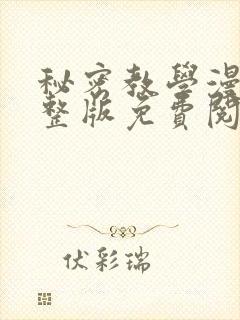 秘密教學漫
整版免費閱
伏彩瑞